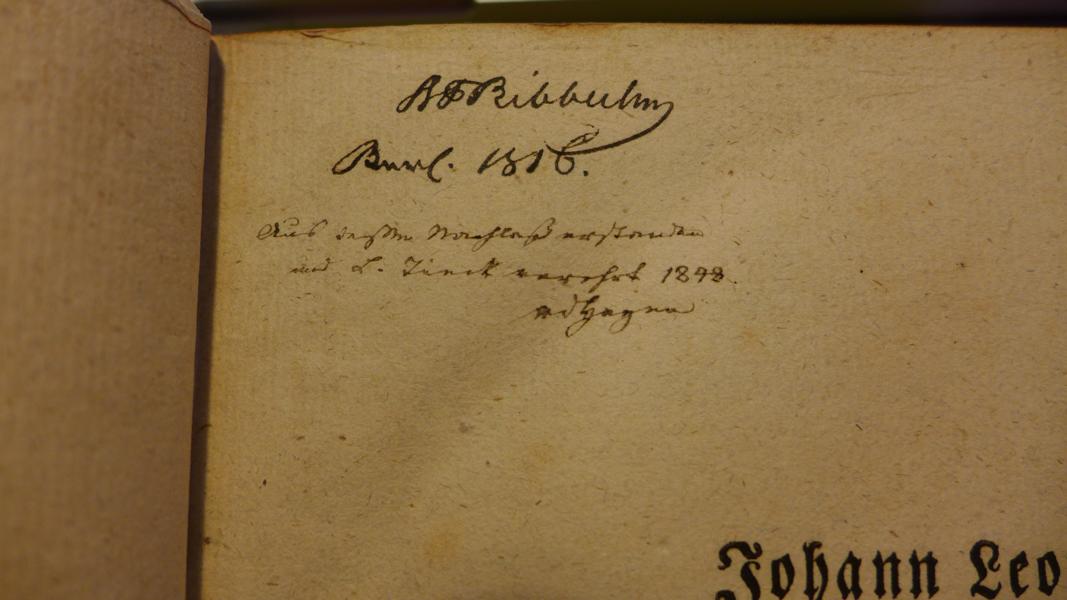 AFRibbuhn
Berl. 1816.
Aus dessen Nachlaß erstanden
und L. Tieck verehrt 1848.
vdHagen
Johann Leo